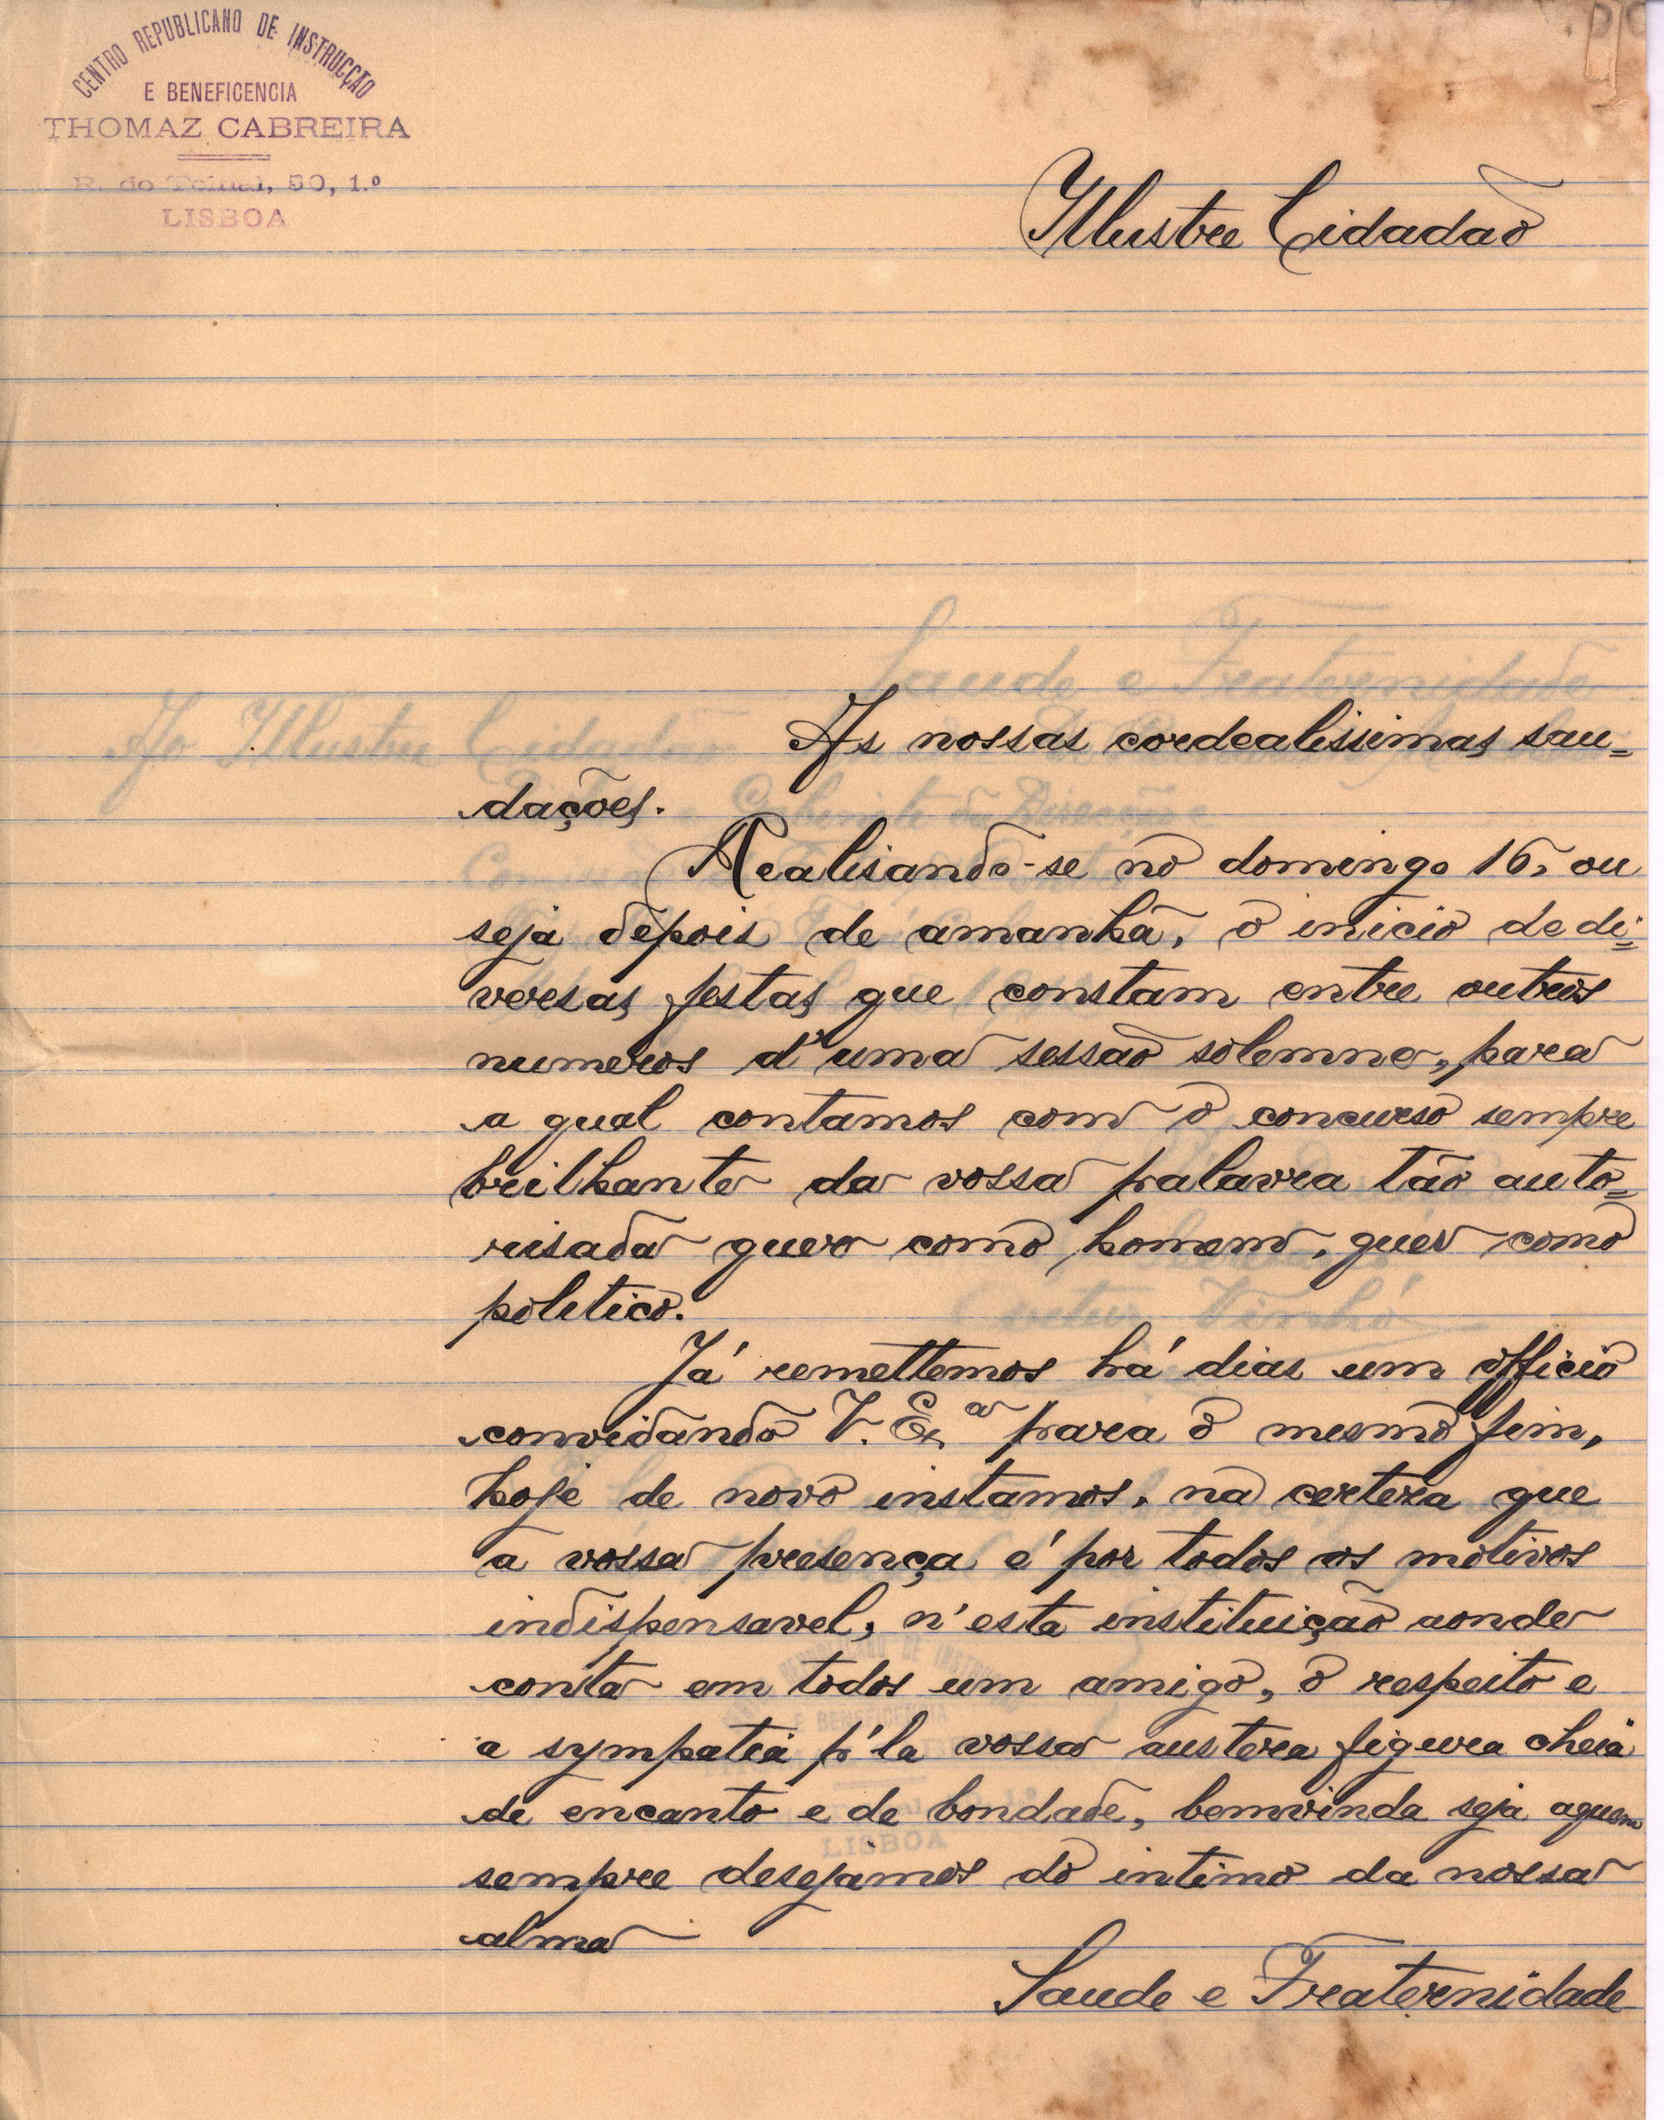 CENTRO REPUBLICANO DE INSTRUCÇÃO
E BENEFICENCIA
THOMAZ CABREIRA
R. do 50, 1.º
LISBOA
Illustre Cidadão
Saude e Fraternidade
Ao Illustre Cidadão
As nossas cordealissimas sau=
dações.
Realisando-se no domingo 16, ou
seja depois de amanhã, o inicio de di=
versas festas que constam entre outros
numeros d'uma sessão solemne, para
a qual contamos com o concurso sempre
brilhante da vossa palavra tão auto=
risada quer como homem, quer como
politico.
Já remettemos há dias um officio
convidando V. Exª para o mesmo fim,
hoje de novo instamos, na certeza que
a vossa presença é por todos os motivos
indispensavel, n'esta instituição aonde
conta em todos um amigo, o respeito e
a sympatia p'la vossa austera figura cheia
de encanto e de bondade, bemvinda seja aquem
sempre desejamos do intimo da nossa
alma
Saude e Fraternidade